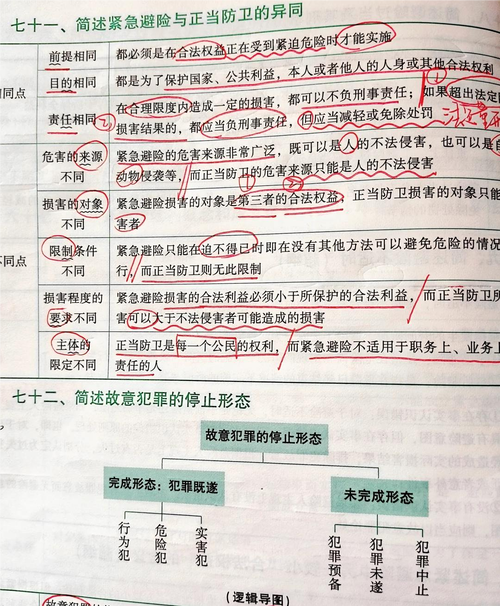 七十一、简述紧急避险与正当防卫的异同
同点
前提相同
都必须是在合法权益正在受到紧迫危险时才能实施
目的相同
都是为了保护国家、公共利益，本人或者他人的人身或其他合法权利
责任相同
在合理限度内造成一定的损害，都可以不负刑事责任；如果超出法定
损害结果的，都应当负刑事责任，但应当减轻或免除处罚
不同点
危害的来源
不同
紧急避险的危害来源非常广泛，既可以是人的不法侵害，也可以是自
动物侵袭等，而正当防卫的危害来源只能是人的不法侵害
损害的对象
不同
紧急避险损害的对象是第三者的合法权益，正当防卫损害的对象只能
害者
限制条件
不同
紧急避险只能在迫不得已时即在没有其他方法可以避免危险的情况
行，而正当防卫则无此限制
损害程度的
要求不同
紧急避险损害的合法利益必须小于所保护的合法利益，而正当防
害可以大于不法侵害者可能造成的损害
主体的
限定不同
正当防卫是每一个公民的权利，而紧急避险不适用于职务上、业务上
责任的人
七十二、简述故意犯罪的停止形态
故意犯罪的停止形态
完成形态：犯罪既遂
未完成形态
行为犯
危险犯
实害犯
犯罪预备
犯罪未遂
犯罪中止
（逻辑导图）